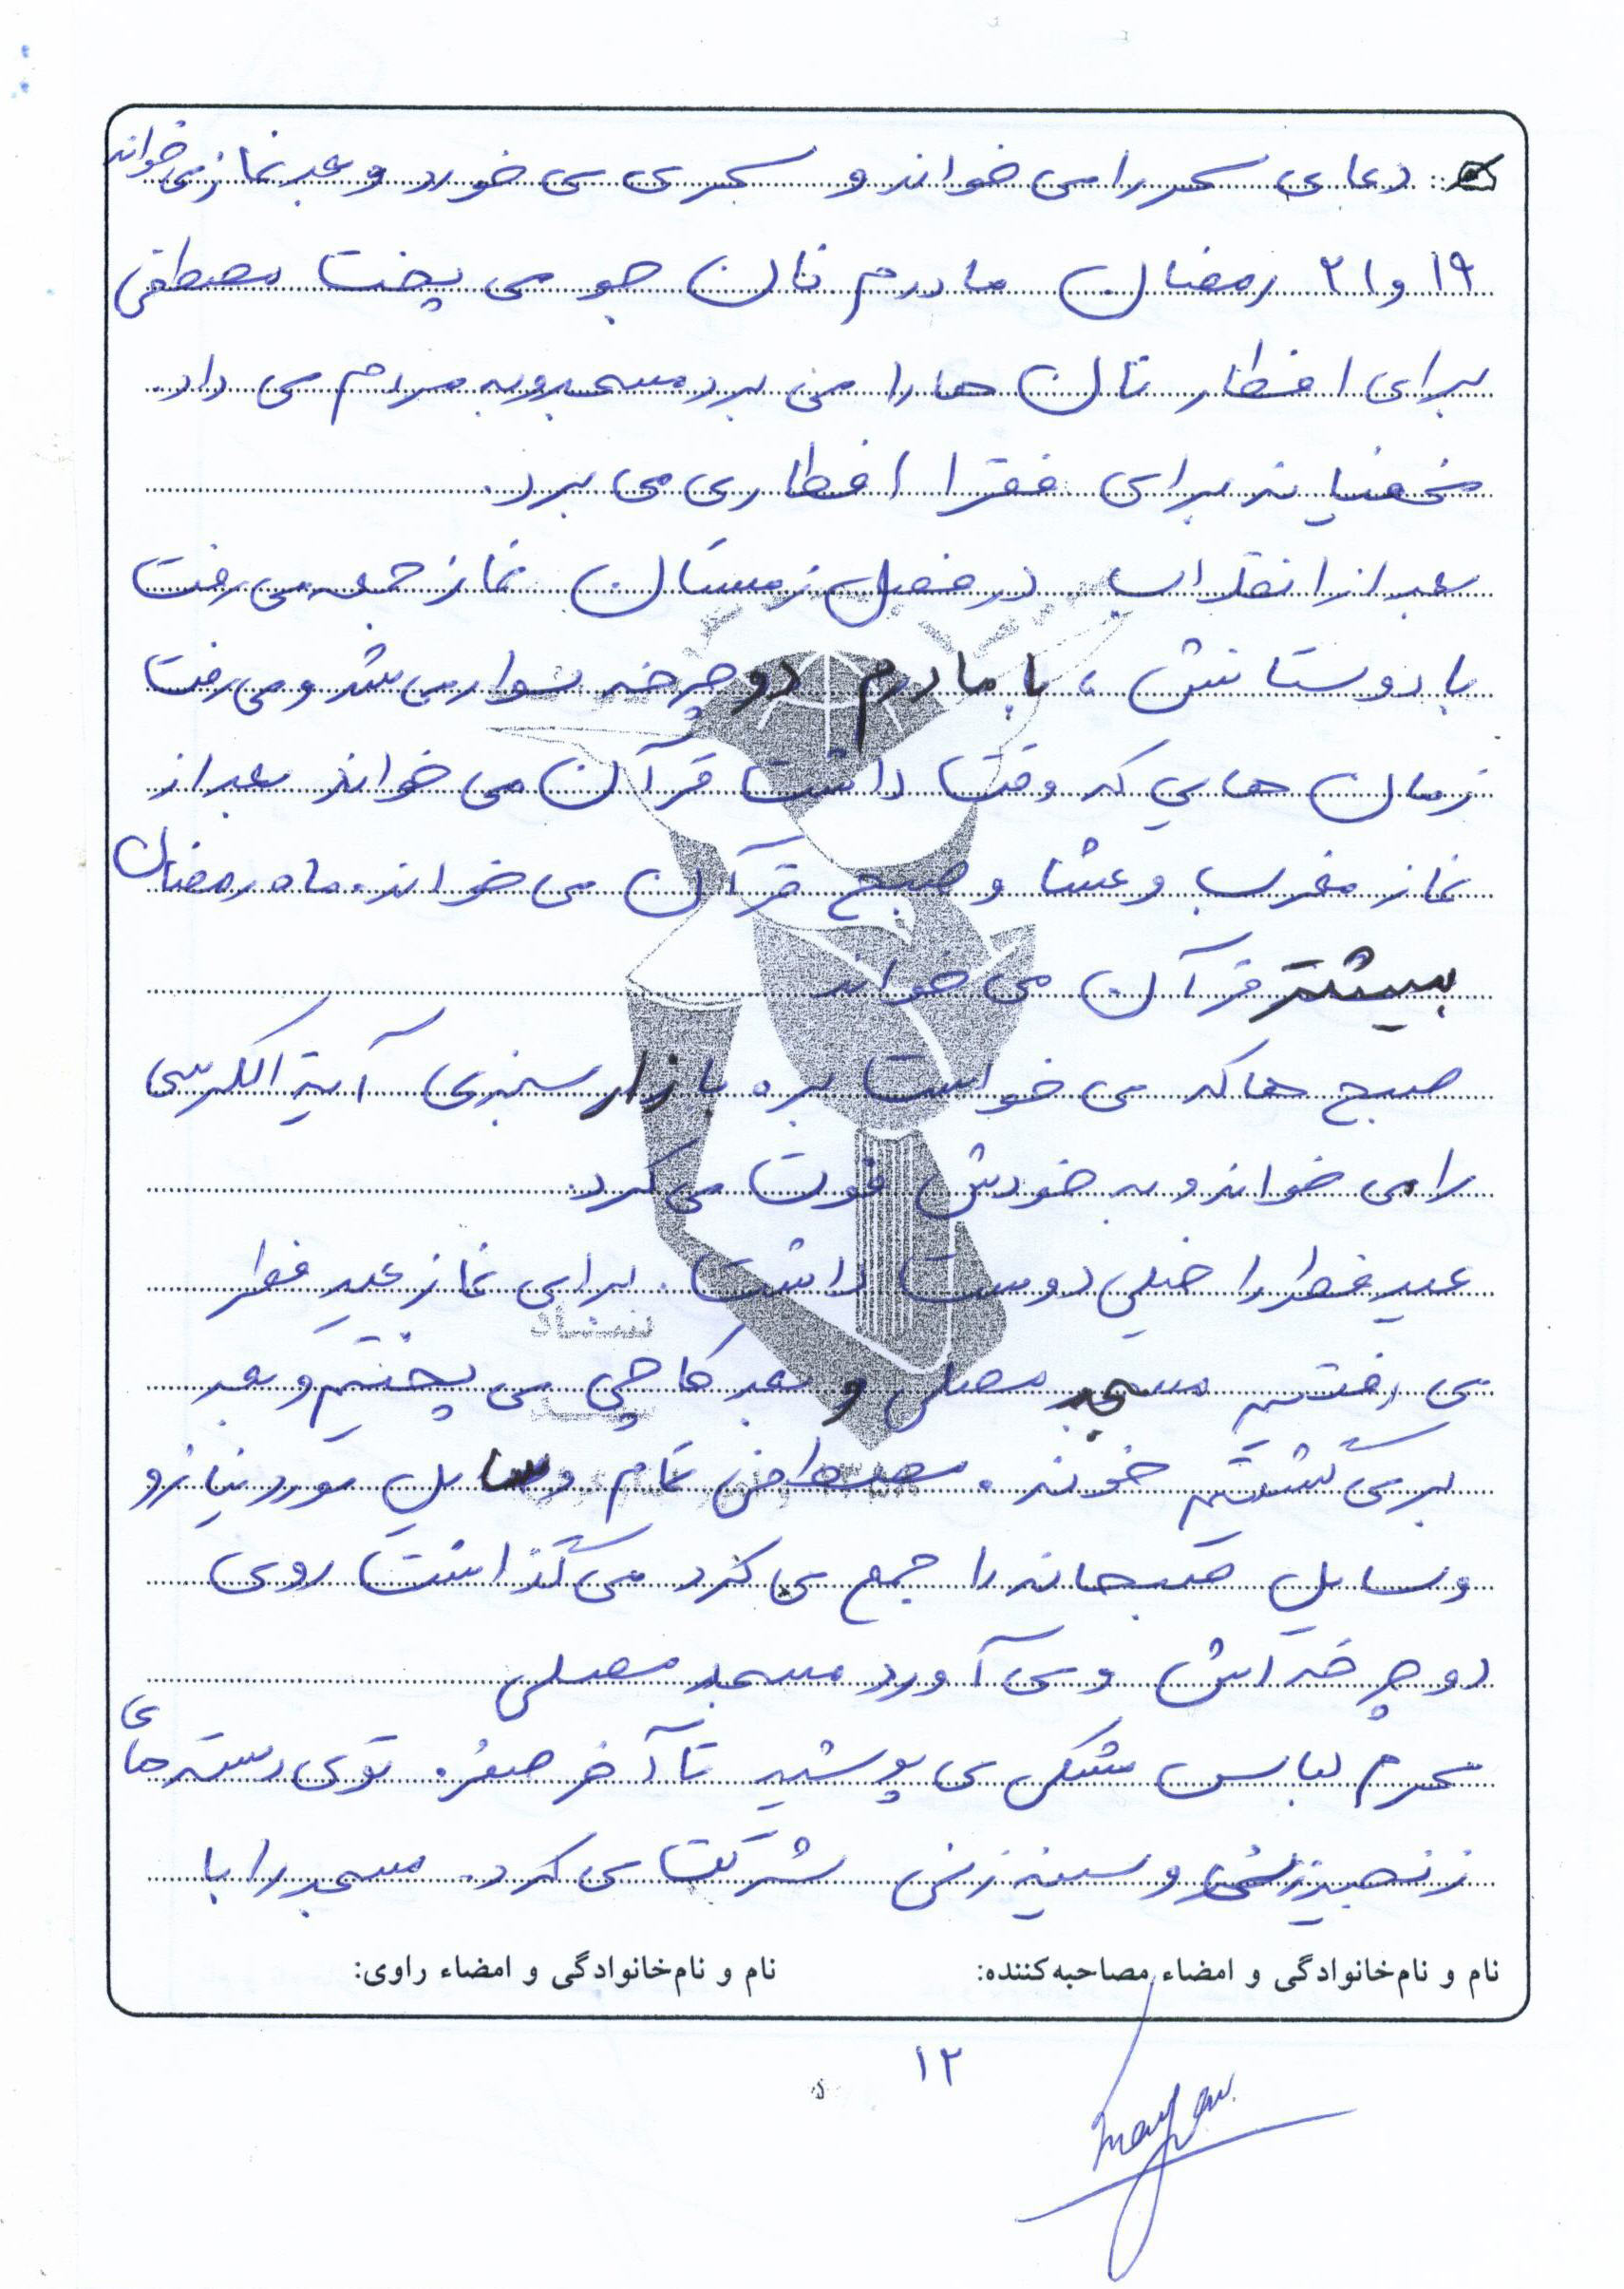 دعای سحر را می خواند و سحری می خورد و بعد نماز می خواند
۱۹ و ۲۱ رمضان مادرم نان جو می پخت مصطفی
برای افطار نان ها را می برد مسجد و به مردم می داد.
مخفیانه برای فقرا افطاری می برد.
بعد از انقلاب در فصل زمستان نماز جمعه می رفت
با دوستانش ، با مادرم دوچرخه سوار می شد و می رفت
زمان هایی که وقت داشت قرآن می خواند بعد از
نماز مغرب و عشا و صبح قرآن می خواند. ماه رمضان
بیشتر قرآن می خواند
صبح ها که می خواست بره بازار سبزی آیة الکرسی
را می خواند و به خودش فوت می کرد.
عید فطر را خیلی دوست داشت. برای نماز عید فطر
می رفتیم مسجد مصلی و بعد کاچی می پختیم و بعد
برمی گشتیم خونه. مصطفی تمام وسایل مورد نیاز و
وسایل صبحانه را جمع می کرد می گذاشت روی
دوچرخه اش و می آورد مسجد مصلی
محرم لباس مشکی می پوشید تا آخر صفر. توی دسته های
زنجیرزنی و سینه زنی شرکت می کرد. مسجد را با
نام و نام‌خانوادگی و امضاء مصاحبه‌کننده: نام و نام‌خانوادگی و امضاء راوی:
۱۲